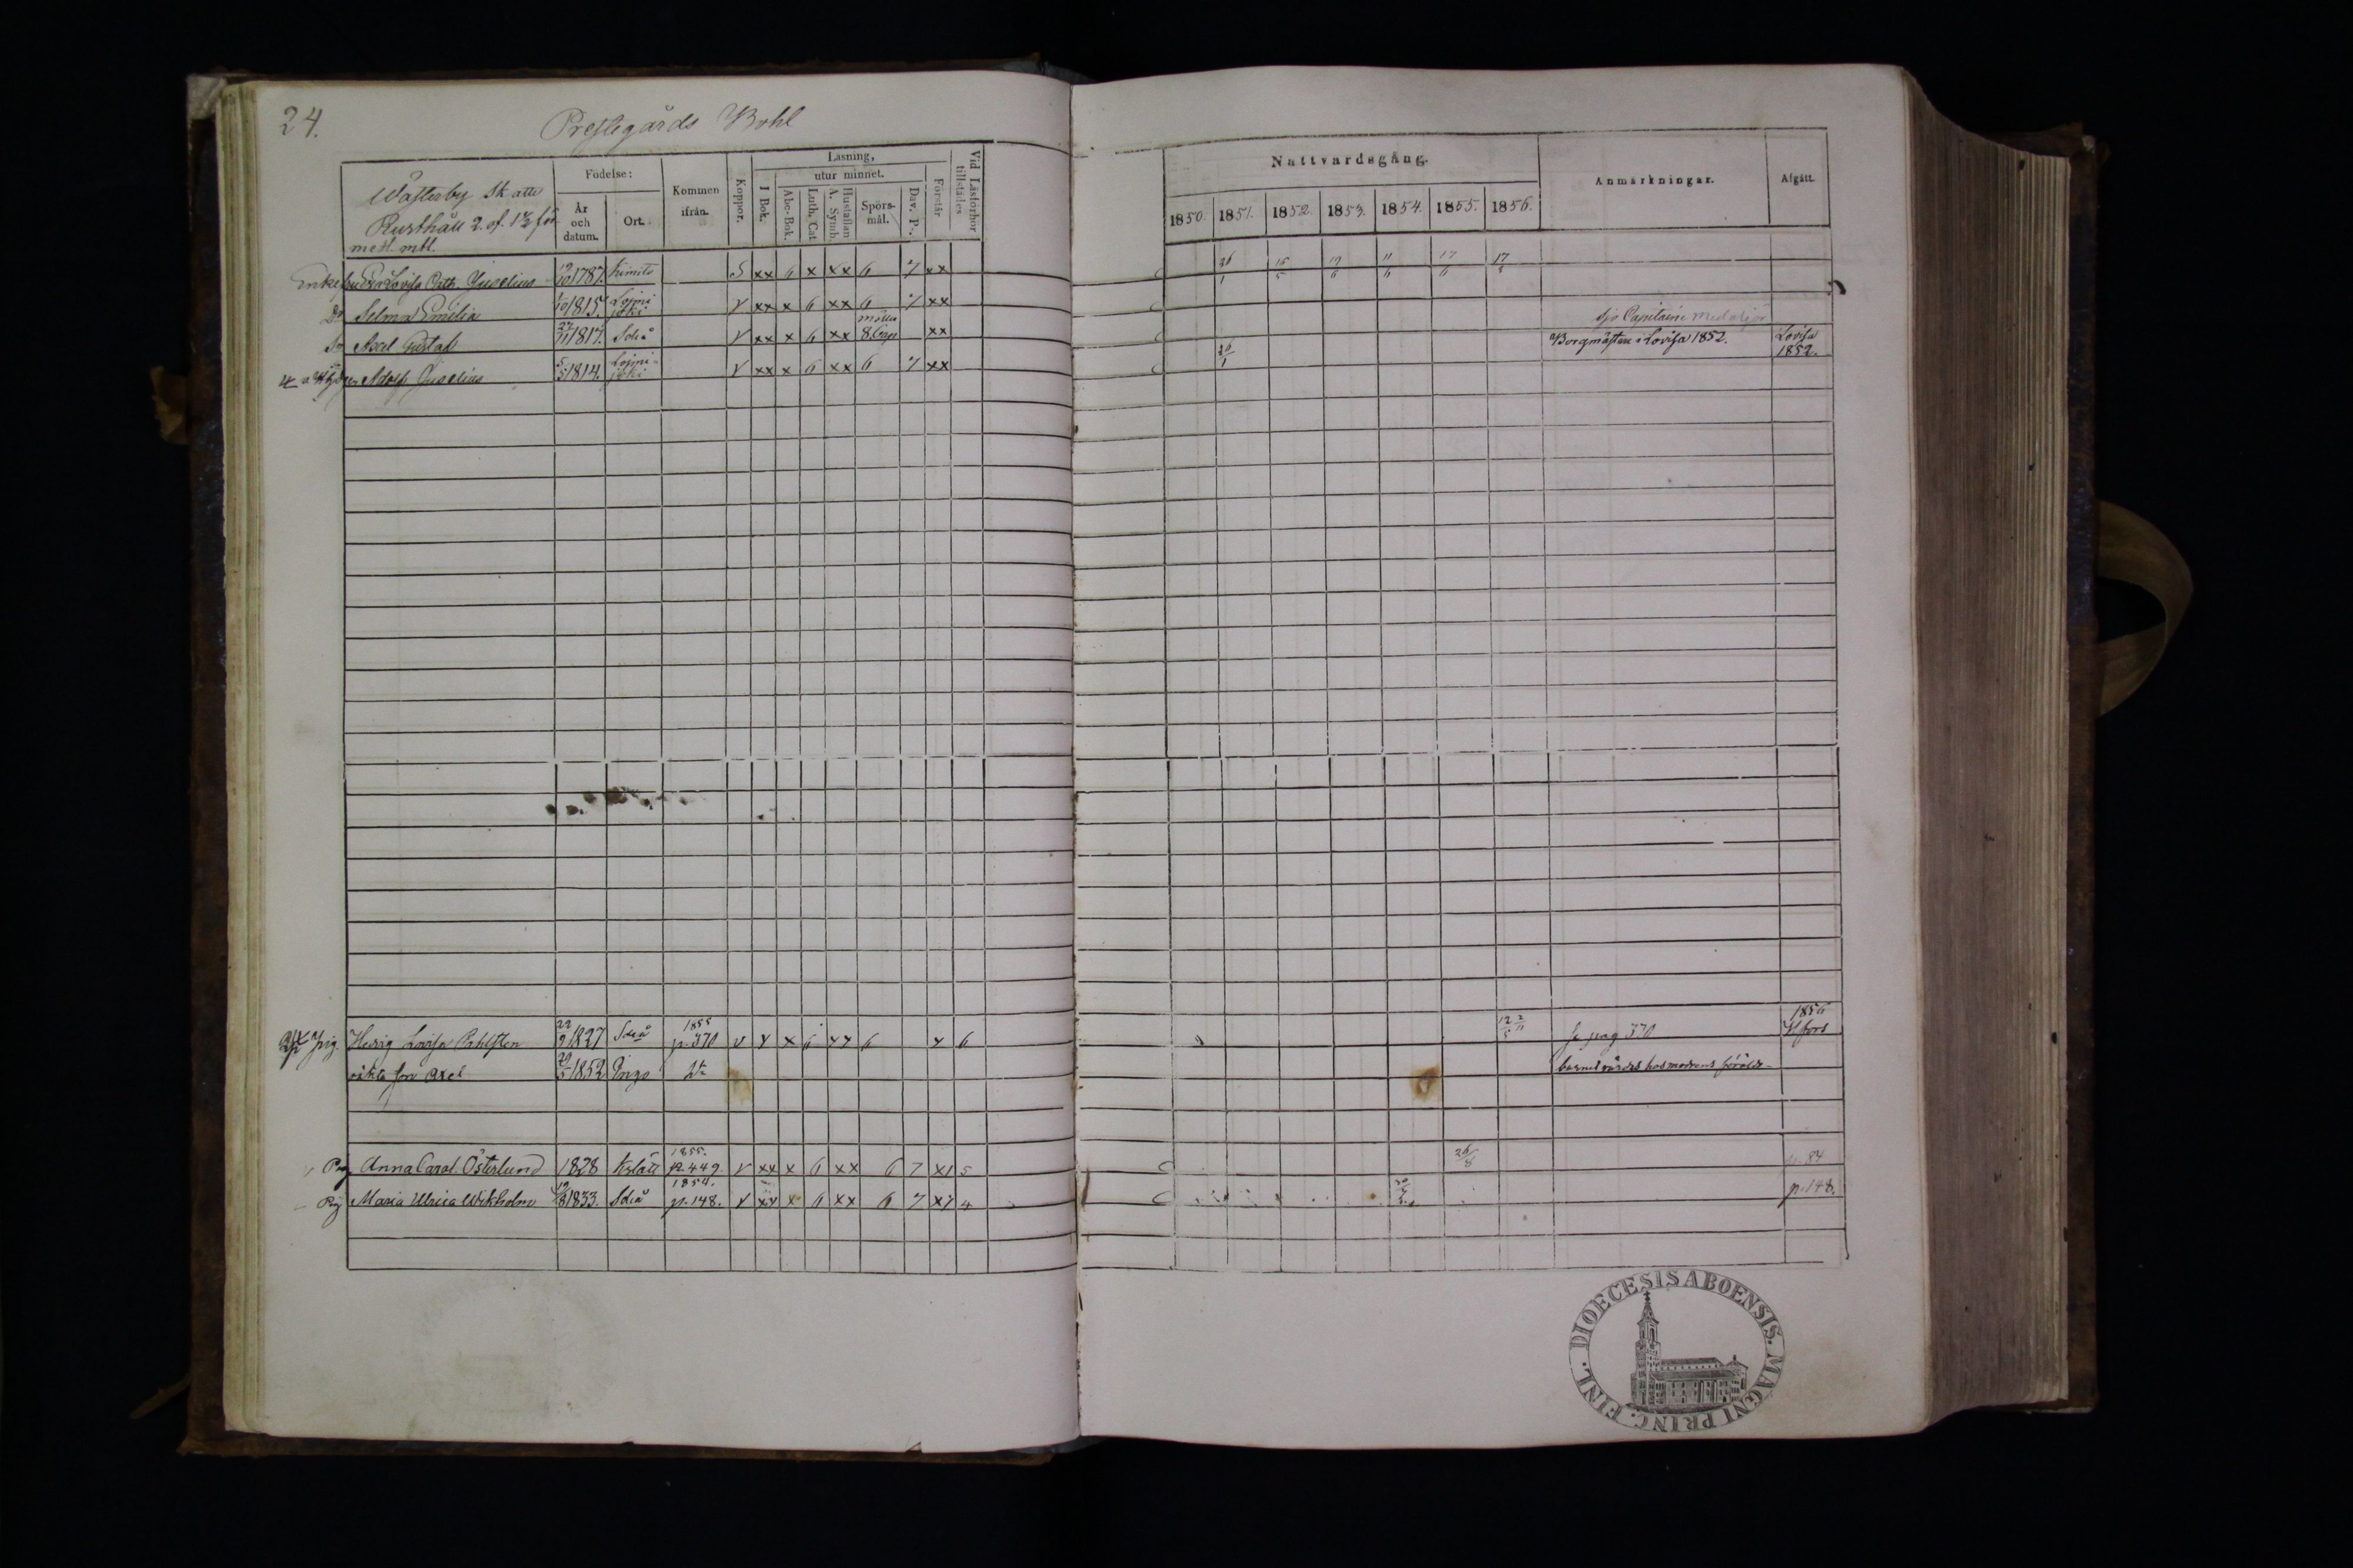 24.
Prestegårds Bohl
Wästerby Skatte
Rusthåll 2. of. 1½ för
metl. mtl.
Födelse:
År och datum.
Ort.
Kommen ifrån.
Koppor.
Läsning,
I Bok.
utur minnet.
Abc-Bok.
Luth. Cat
Hustaflan A. Symb.
Spörs-mål.
Dav. P.
Förstår
Vid Läsförhör tillstädes
Nattvardsgång.
1850. 1851. 1852. 1853. 1854. 1855. 1856.
Anmärkningar.
Afgått.
Enkefru Eva Lovisa Cath. Juselius 19/10 1787. Kimito S xx 6 x xx 6 7 xx 26/1 15/5 19/6 11/6 17/6 17/5
Dr Selma Emilia 1815. Loimijoki v xx x 6 xx 6 7 xx
Sjö Capitaine medaljör
Sr Axel Gustaf 1817. Sdeå v xx x 6 xx 8. Cap xx Borgmästare i Lovisa 1852. Lovisa 1852.
Adolf Juselius 5/5 1814. Loimijoki v xx x 6 xx 6 7 xx 26/1
Pig. Hedvig Lovisa Pahlsten 22/9 1827 Sdeå 1855 p. 370 v x x 6 xx 6 x 6 12/5 2/11 se pag 370 1856 H:fors
oäkta son Axel 1852 Ingo barnet vårdas hos modrens föräldr
Pig Anna Carol. Österlund 1828 Kslätt 1855. p. 449. v xx x 6 xx 6 7 x1 5 26/8 p. 84
Pig Maria Ulrica Wikholm 1833. Sdeå 1854. p. 148. v xx x 6 xx 6 7 x7 4 p. 148.
DIOECESIS ABOENSIS. MAGNI PRINC. FINL.